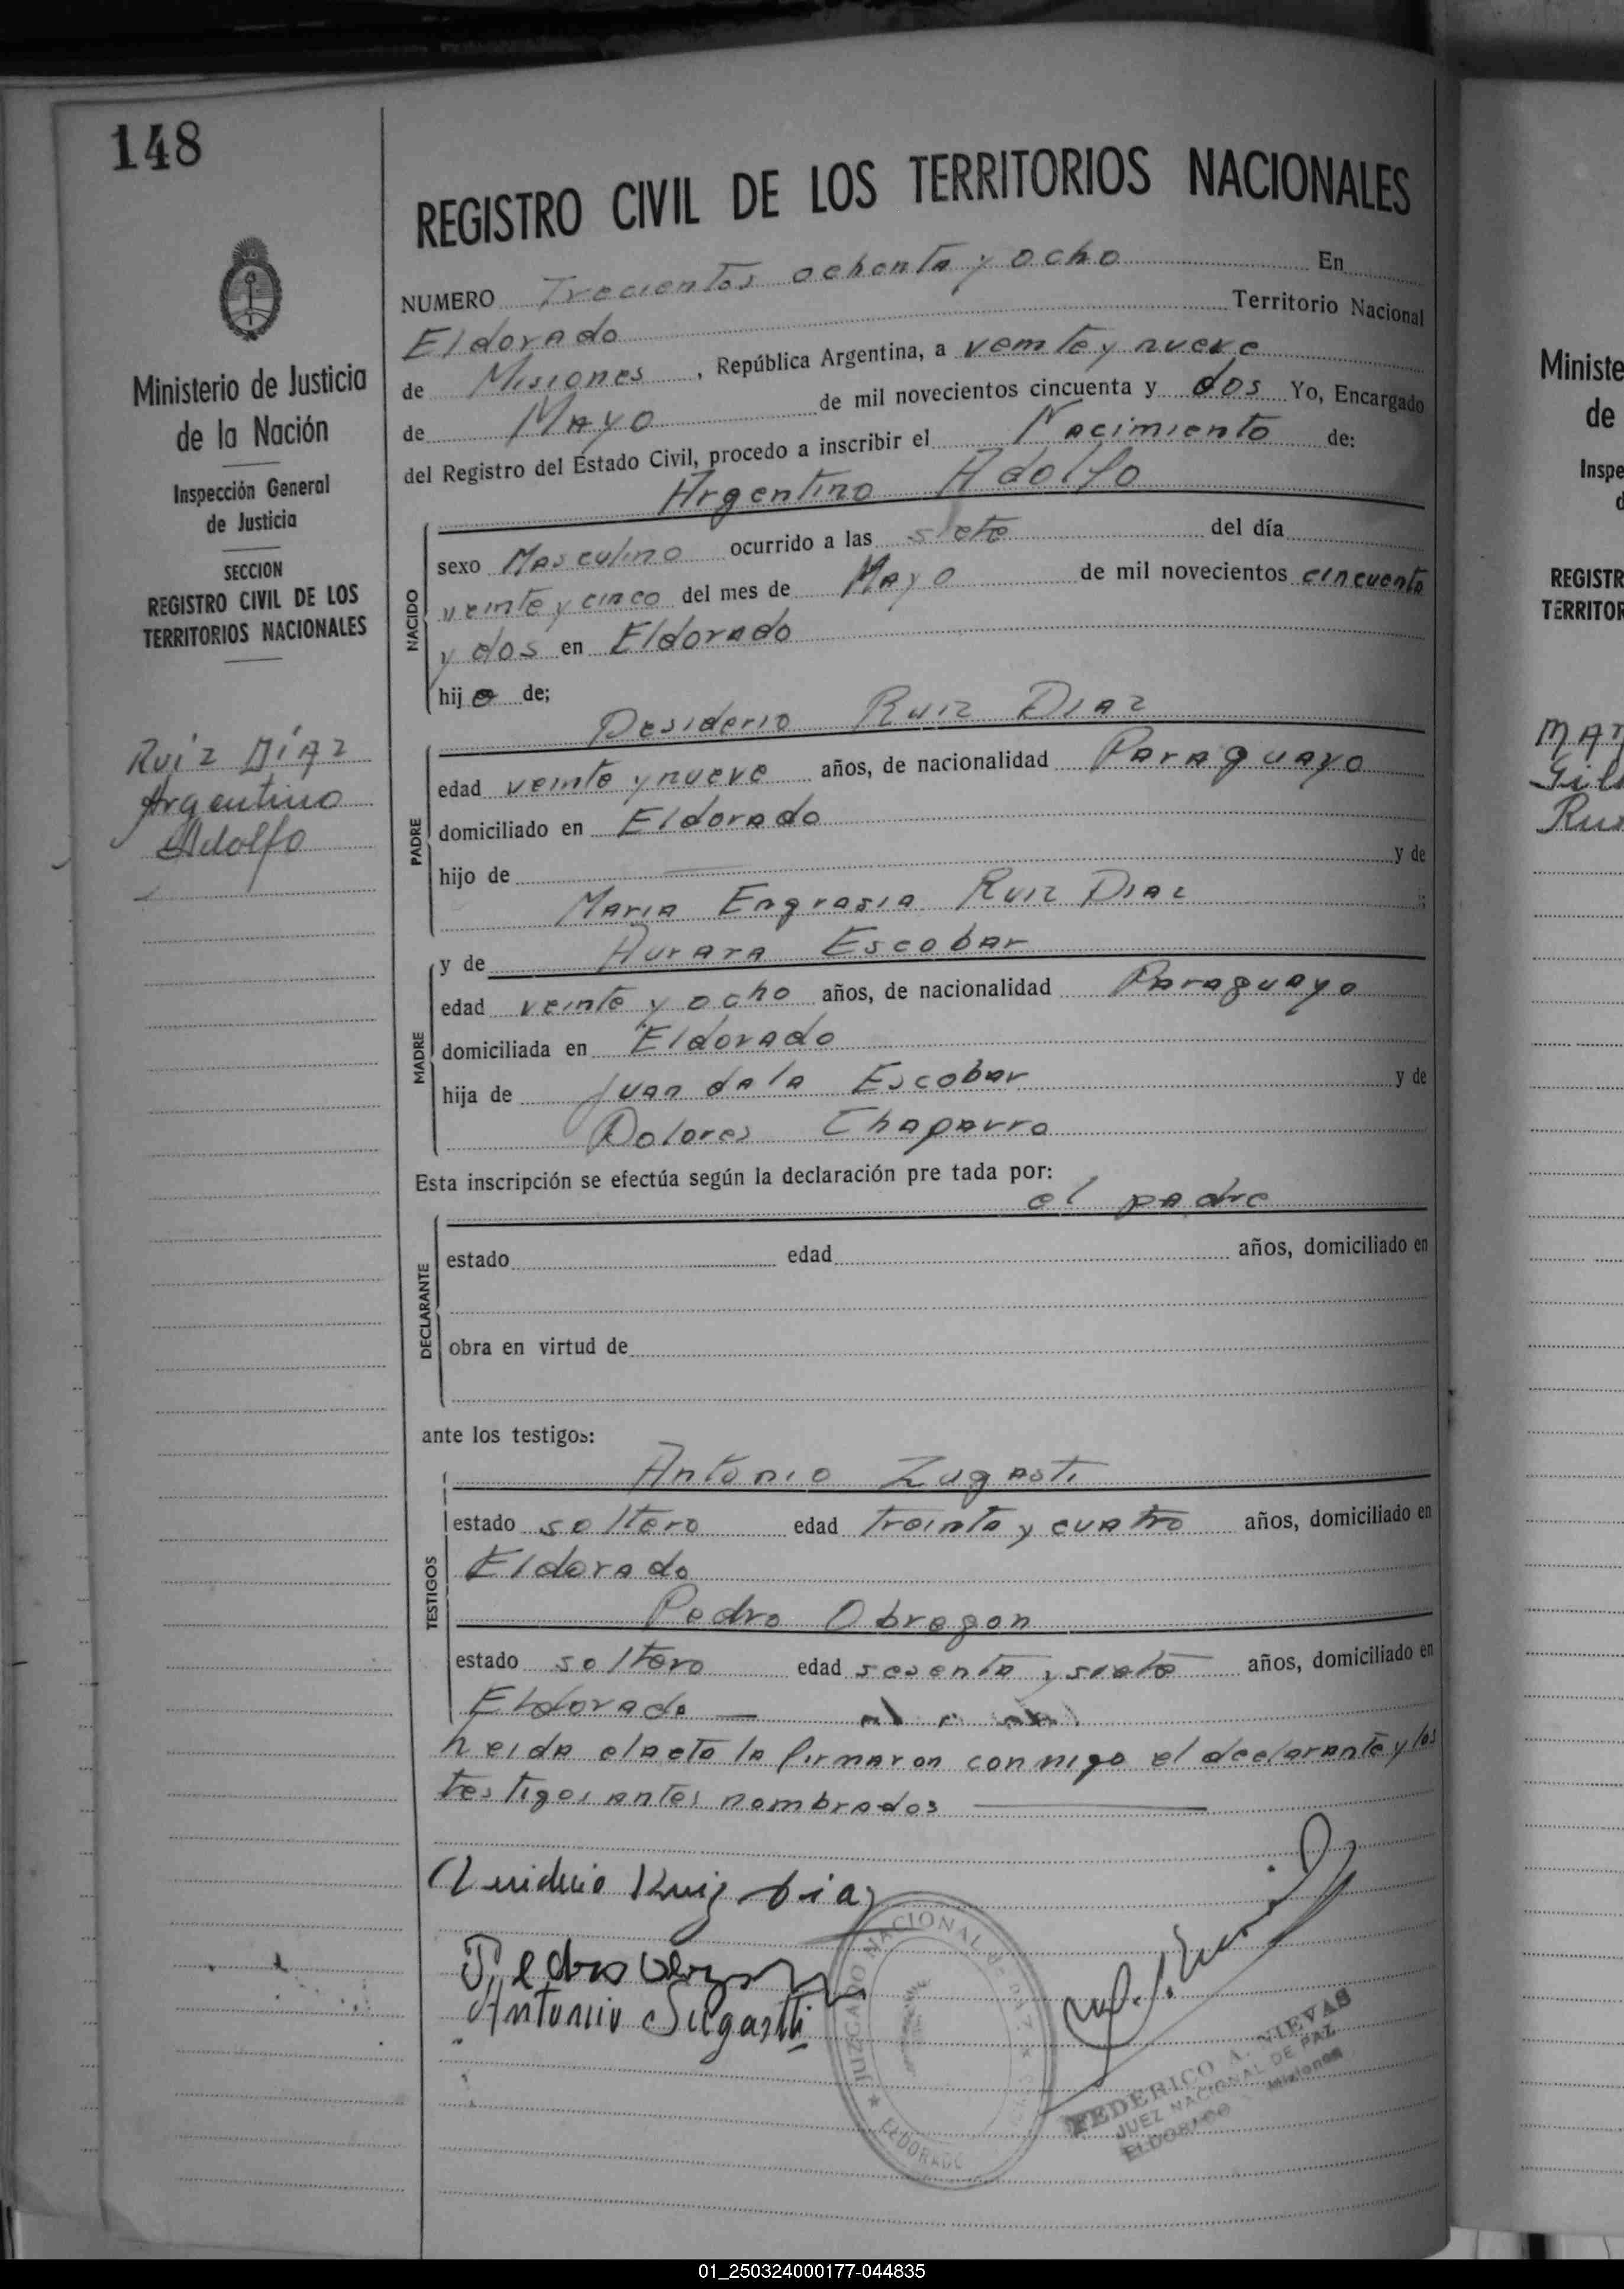 148
Ministerio de Justicia
de la Nación
Inspección General
de Justicia
SECCION
REGISTRO CIVIL DE LOS
TERRITORIOS NACIONALES
Ruiz Díaz
Argentino
Adolfo
REGISTRO CIVIL DE LOS TERRITORIOS NACIONALES
NUMERO Trecientos ochenta y ocho En
Eldorado Territorio Nacional
de Misiones, República Argentina, a veinte y nueve
de Mayo de mil novecientos cincuenta y dos Yo, Encargado
del Registro del Estado Civil, procedo a inscribir el Nacimiento de:
Argentino Adolfo
NACIDO
sexo Masculino ocurrido a las siete del día
veinte y cinco del mes de Mayo de mil novecientos cincuenta
y dos en Eldorado
hijo de;
Desiderio Ruiz Diaz
PADRE
edad veinte y nueve años, de nacionalidad Paraguayo
domiciliado en Eldorado
hijo de y de
Maria Engrasia Ruiz Diaz
y de Aurara Escobar
MADRE
edad veinte y ocho años, de nacionalidad Paraguayo
domiciliada en Eldorado
hija de Juan dela Escobar y de
Dolores Chaparro
Esta inscripción se efectúa según la declaración pre tada por:
el padre
DECLARANTE
estado edad años, domiciliado en
obra en virtud de
ante los testigos:
TESTIGOS
Antonio Zugasti
estado soltero edad treinta y cuatro años, domiciliado en
Eldorado
Pedro Obregon
estado soltero edad sesenta y siete años, domiciliado en
Eldorado
heida elacta la firmaron conmigo el declarante y los
testigos antes nombrados
Ruiz Diaz
Pedro
Antonio Sugasti
JUZGADO NACIONAL DE PAZ
ELDORADO
FEDERICO A. NIEVAS
JUEZ NACIONAL DE PAZ
ELDORADO Misiones
Ministe
de
Inspe
d
REGISTR
TERRITOR
01_250324000177-044835